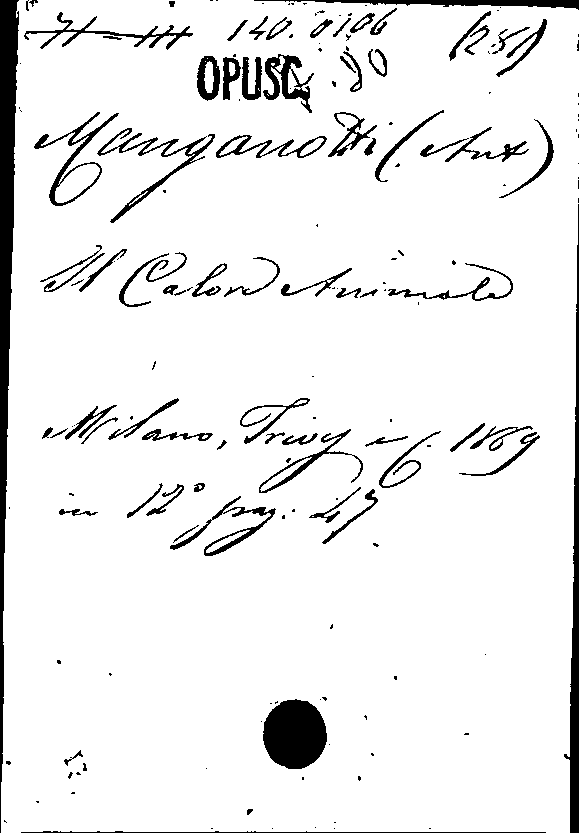 71-III 140.0106 (281)
OPUSC. .90
Manganotti (Ant)
Il Calore Animale
Milano, Treves e C. 1869
in 12° pag: 47